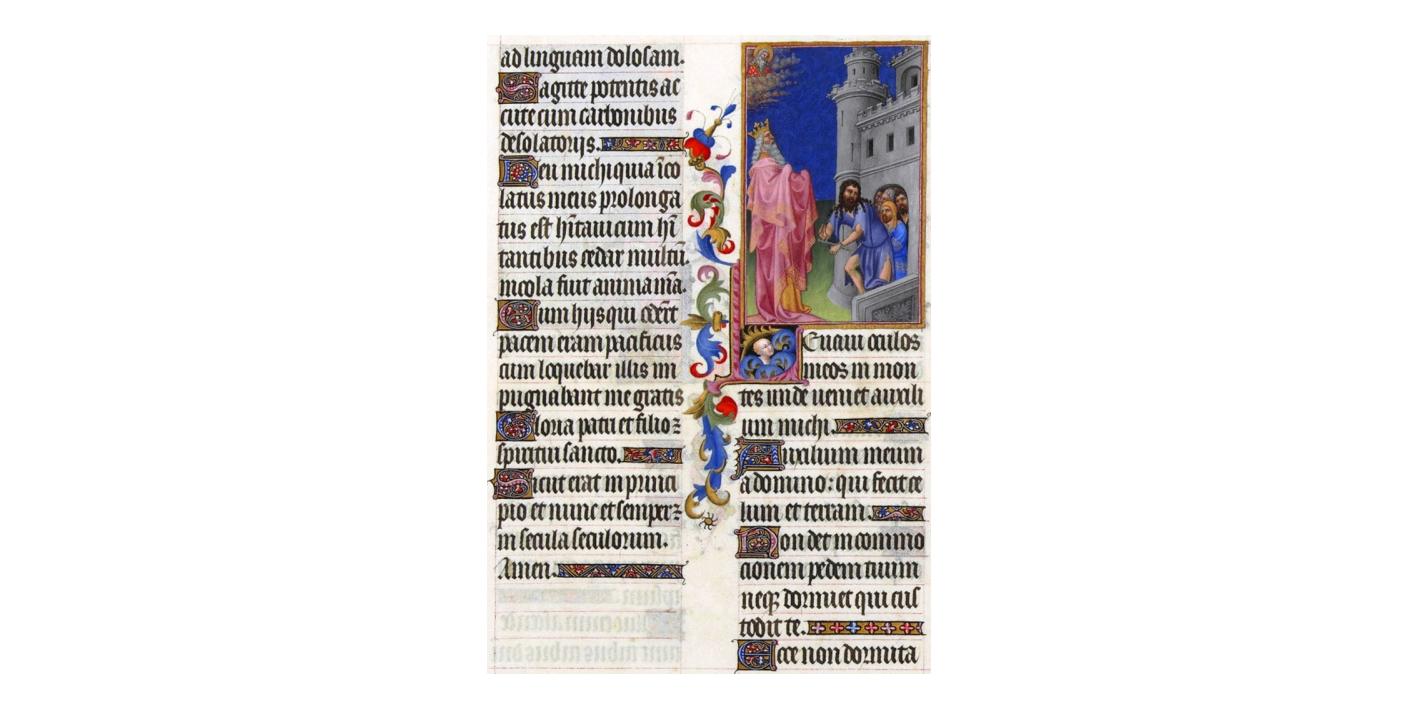 ad linguam dolosam.
Sagitte potentis ac
cute cum carbonibus
desolatorijs.
Heu michi quia īco
latus meus prolonga
tus est hītaui cum hī
tantibus cedar multū
incola fuit anima mā.
Cum hijs qui odert̄
pacem eram pacificus
cum loquebar illis im
pugnabant me gratis
Gloria patri et filio ⁊
spiritui sancto.
Sicut erat in princi
pio et nunc et semper ⁊
in secula seculorum.
Amen.
Leuaui oculos
meos in mon
tes unde ueniet auxili
um michi.
Auxilium meum
a domino: qui fecit ce
lum et terram.
Non det in commo
cionem pedem tuum
neqꝫ dormiet qui cus
todit te.
Ecce non dormita